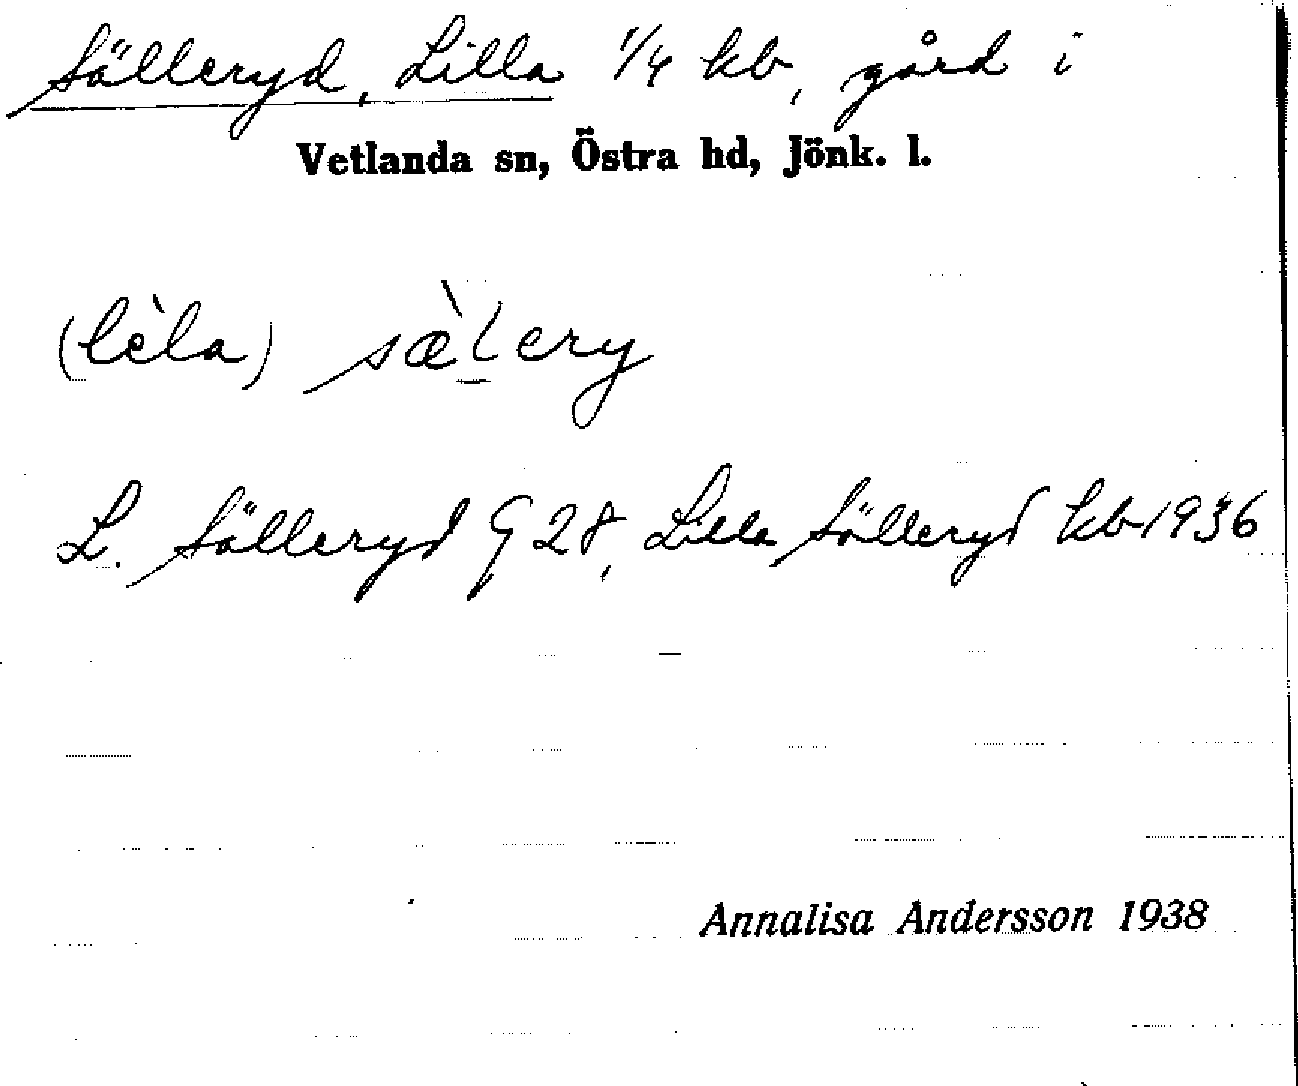 Sälleryd, Lilla 1/4 kb, gård i
Vetlanda sn, Östra hd, Jönk. l.
(lèla) sæ̀lery
L. Sälleryd G 28, Lilla Sälleryd kb 1936
Annalisa Andersson 1938